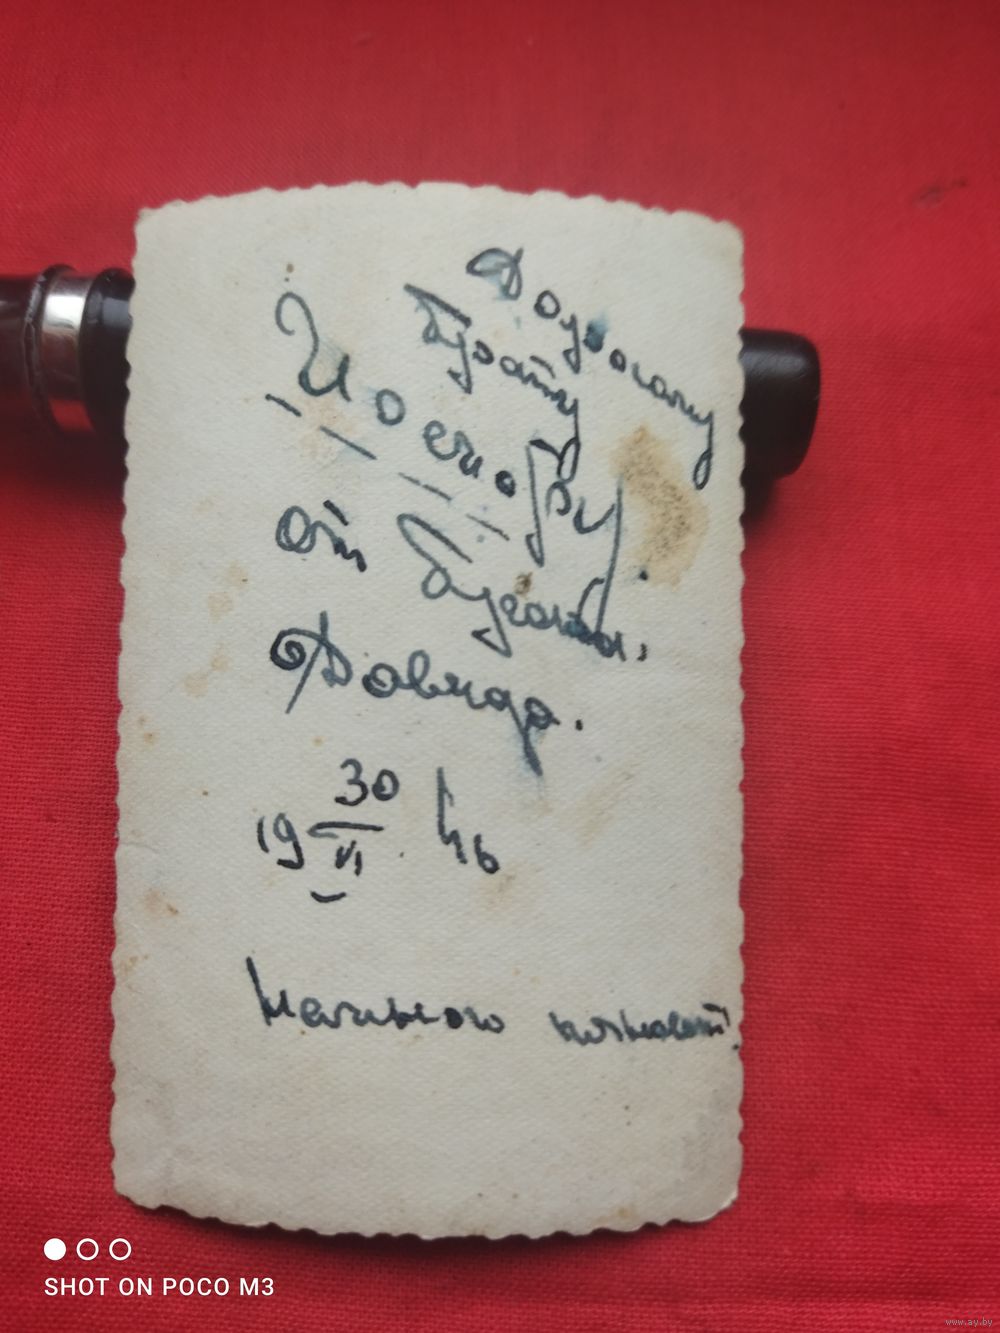 Дорогому
брату
Иосифу
от брата.
Давида.
19 30/VI 46
SHOT ON POCO M3
www.ay.by